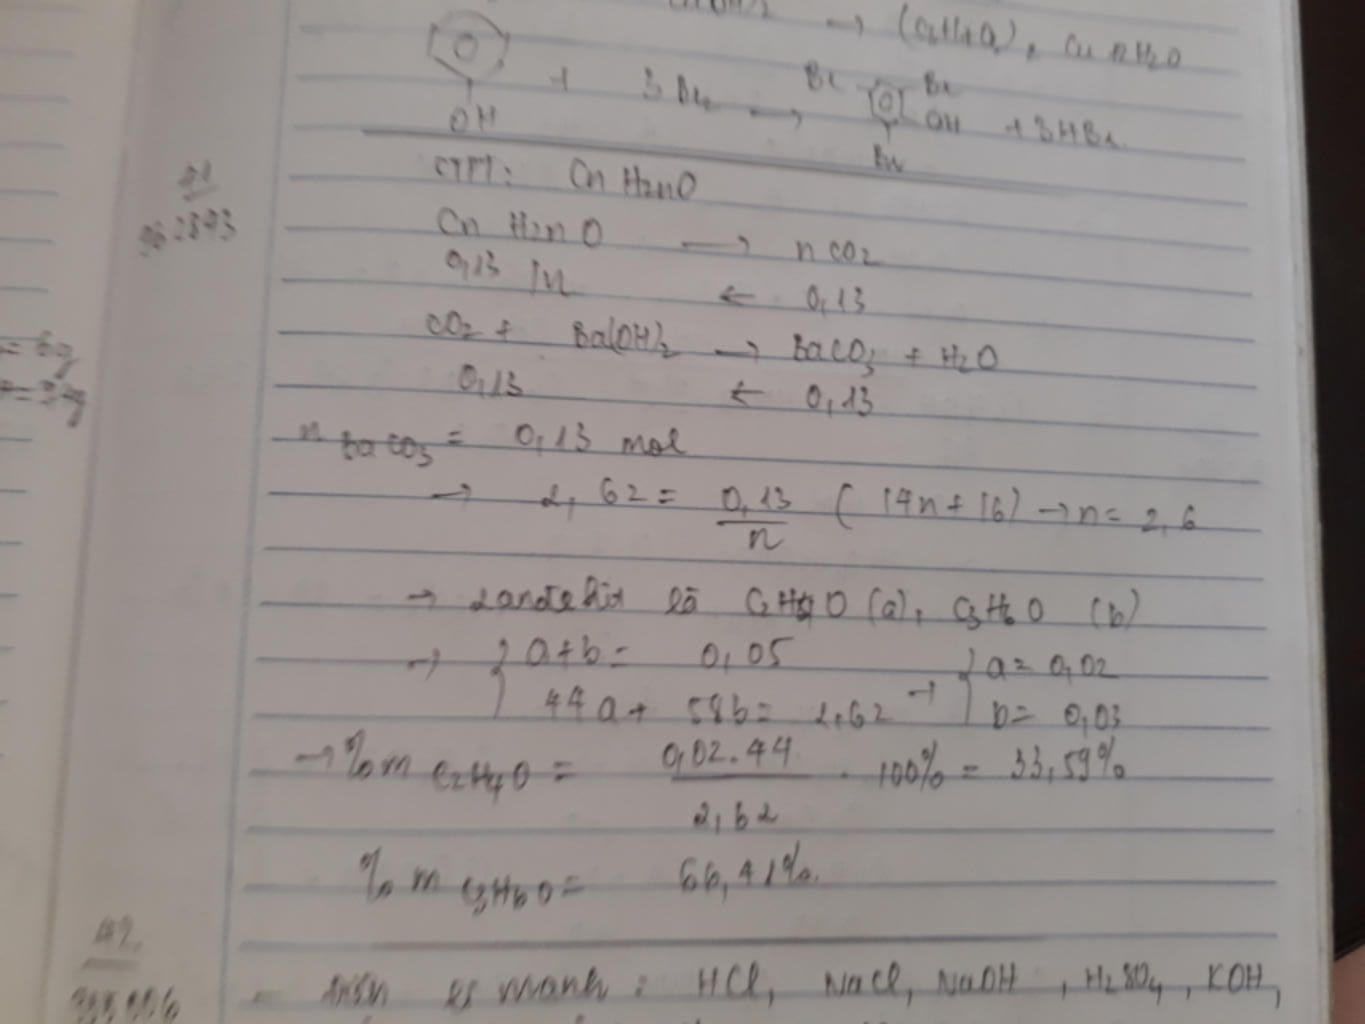 → (C2H4O2)2 Cu + H2O
+ 3Br2 → Br Br
OH OH + 3HBr
Br
CTPT: CnH2nO
CnH2nO → nCO2
0,13/n ← 0,13
962893
CO2 + Ba(OH)2 → BaCO3 + H2O
= 6g
0,13 ← 0,13
n BaCO3 = 0,13 mol
→ 2,62 = 0,13/n (14n + 16) → n = 2,6
→ 2 anđehit là C2H4O (a), C3H6O (b)
→ { a+b = 0,05 { a = 0,02
44a + 58b = 2,62 → b = 0,03
→ %m C2H4O = 0,02.44 / 2,62 . 100% = 33,59%
%m C3H6O = 66,41%.
42.
- điện li mạnh : HCl, NaCl, NaOH, H2SO4, KOH,